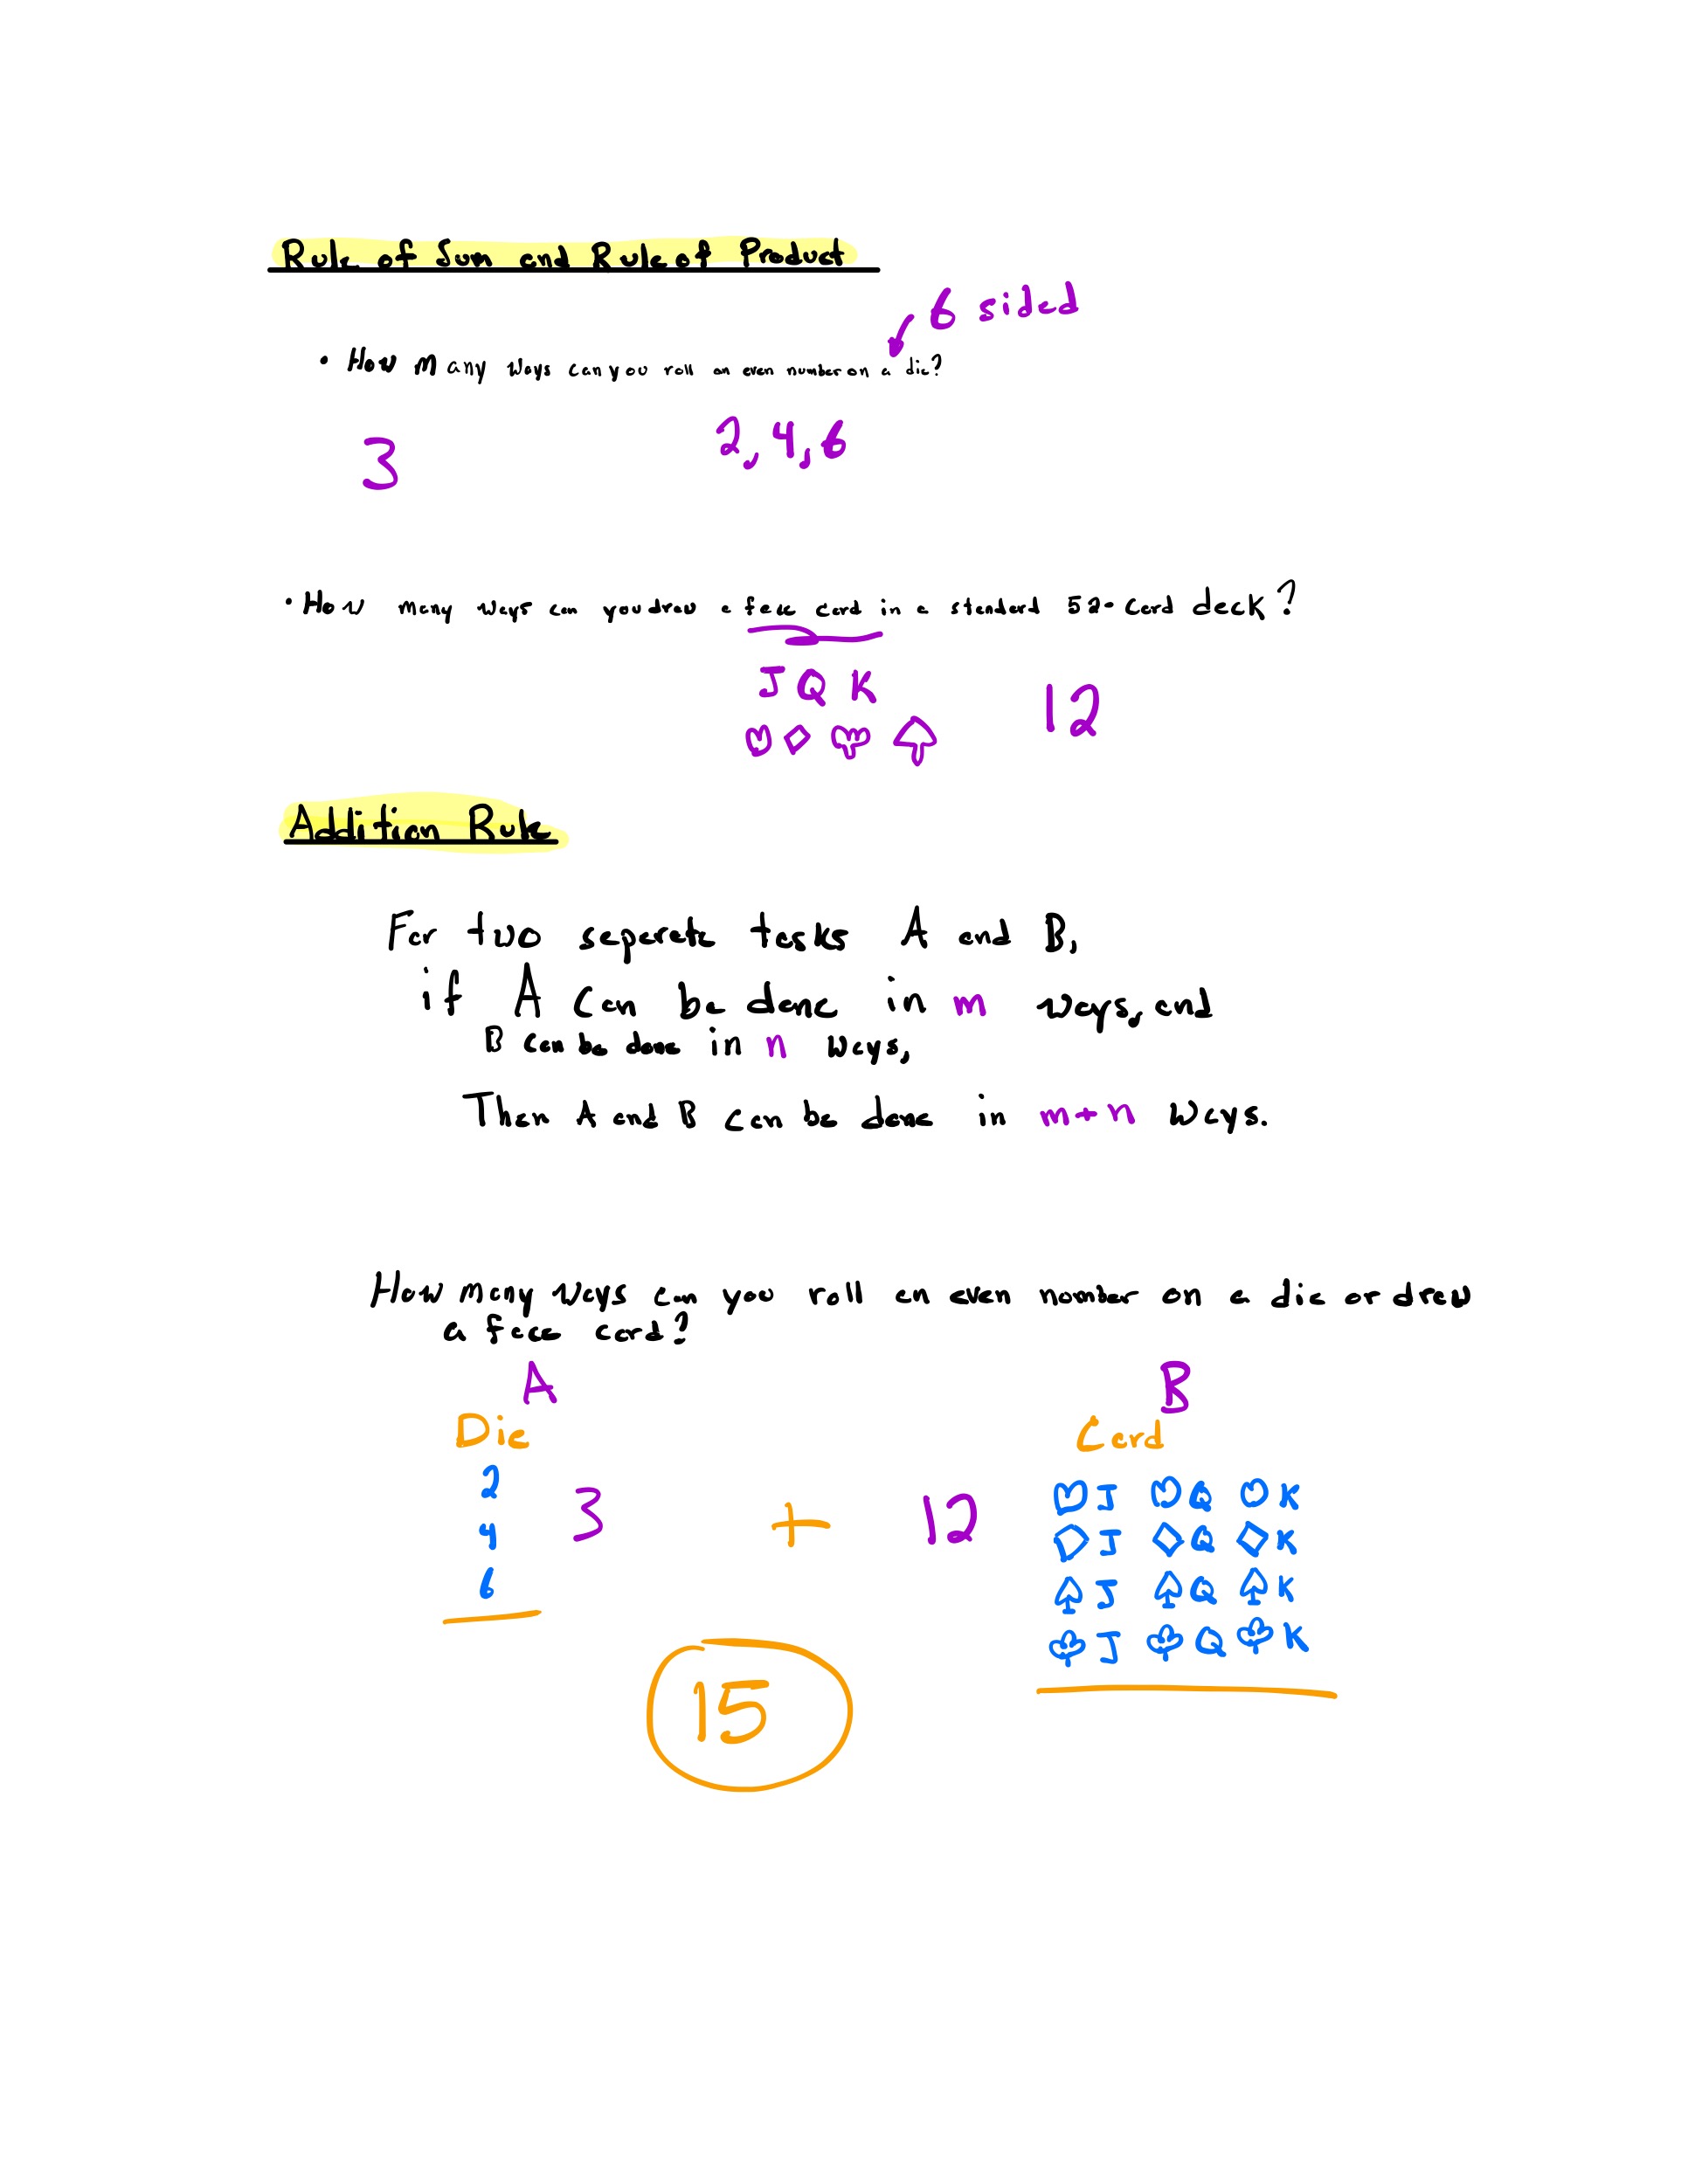 Rule of Sum and Rule of Product
6 sided
• How many ways can you roll an even number on a die?
3
2, 4, 6
• How many ways can you draw a face card in a standard 52-card deck?
J Q K
♡ ♢ ♧ ♤
12
Addition Rule
For two seperate tasks A and B,
if A can be done in m ways, and
B can be done in n ways,
Then A and B can be done in m+n ways.
How many ways can you roll an even number on a die or draw
a face card?
A
B
Die
Card
2
4
6
3 + 12
♡J ♡Q ♡K
♢J ♢Q ♢K
♤J ♤Q ♤K
♧J ♧Q ♧K
15